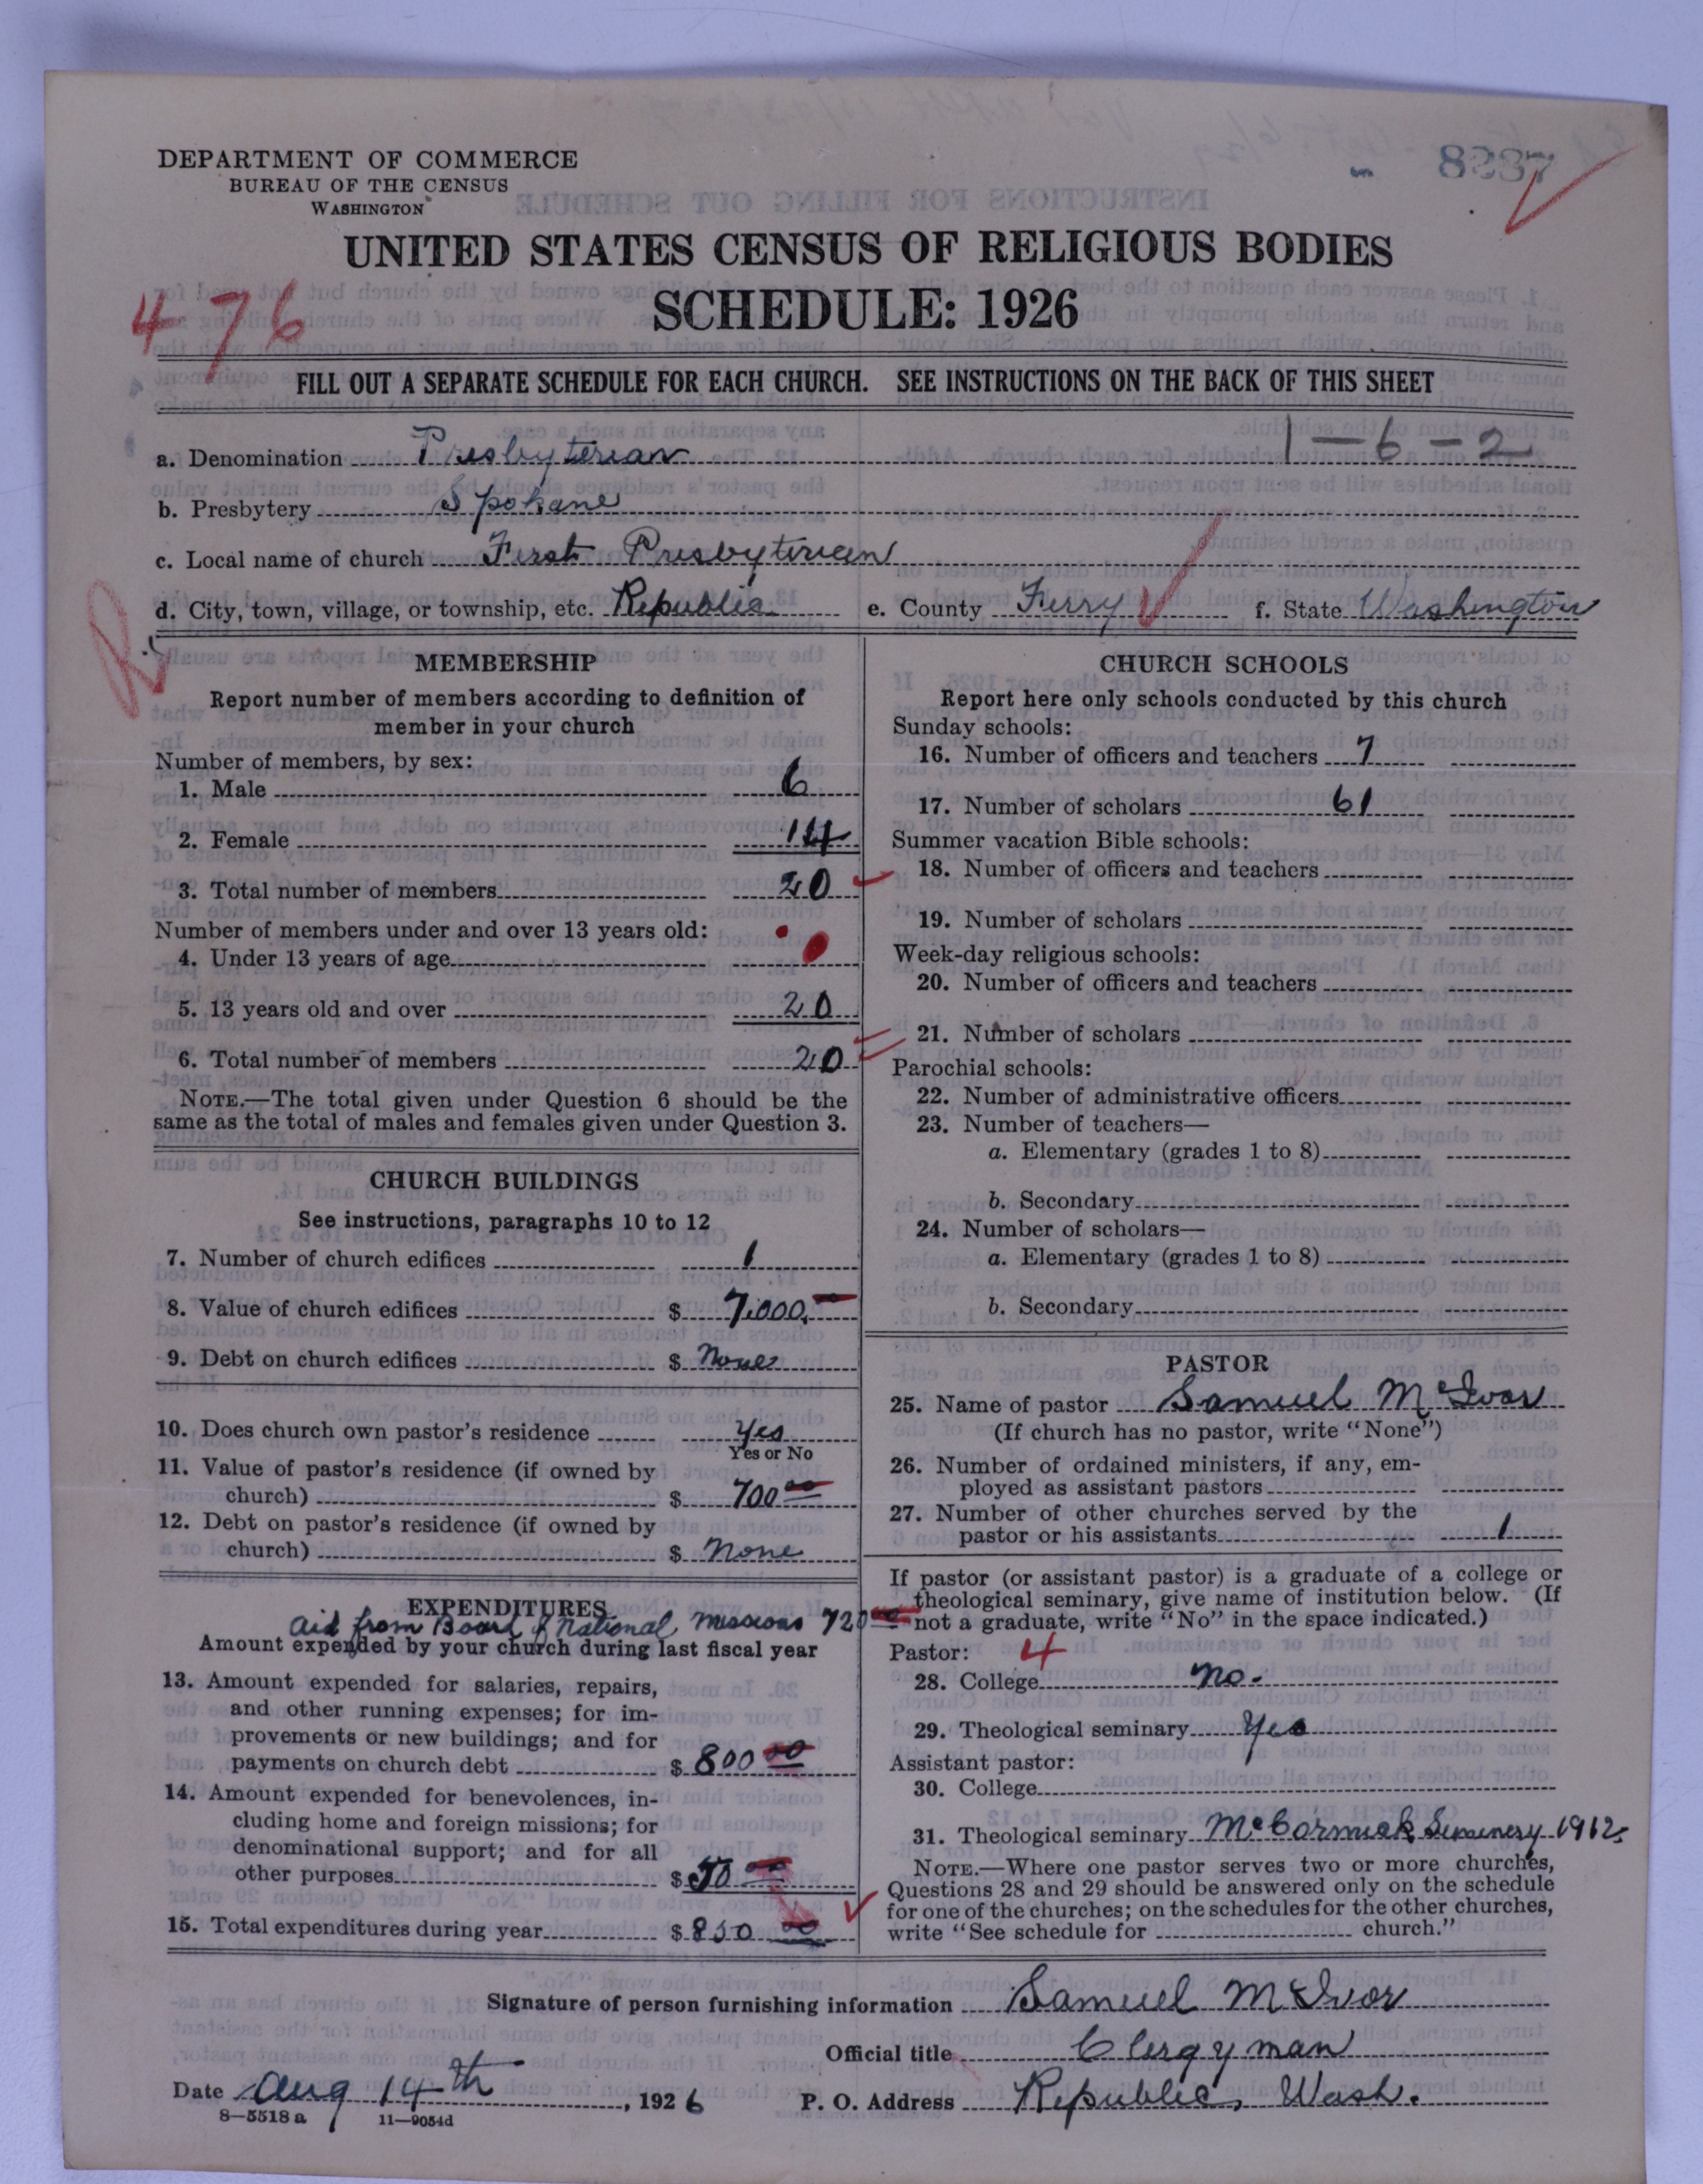 DEPARTMENT OF COMMERCE
BUREAU OF THE CENSUS
WASHINGTON
8237
UNITED STATES CENSUS OF RELIGIOUS BODIES
SCHEDULE: 1926
476
FILL OUT A SEPARATE SCHEDULE FOR EACH CHURCH. SEE INSTRUCTIONS ON THE BACK OF THIS SHEET
1-6-2
a. Denomination Presbyterian
b. Presbytery Spokane
c. Local name of church First Presbyterian
d. City, town, village, or township, etc. Republic e. County Ferry f. State Washington
R
MEMBERSHIP
Report number of members according to definition of
member in your church
Number of members, by sex:
1. Male 6
2. Female 14
3. Total number of members 20
Number of members under and over 13 years old:
4. Under 13 years of age
5. 13 years old and over 20
6. Total number of members 20
NOTE.—The total given under Question 6 should be the
same as the total of males and females given under Question 3.
CHURCH BUILDINGS
See instructions, paragraphs 10 to 12
7. Number of church edifices 1
8. Value of church edifices $ 7,000.00
9. Debt on church edifices $ None
10. Does church own pastor's residence yes
Yes or No
11. Value of pastor's residence (if owned by
church) $ 700 00
12. Debt on pastor's residence (if owned by
church) $ None
EXPENDITURES
Aid from Board of National Missions 720 00
Amount expended by your church during last fiscal year
13. Amount expended for salaries, repairs,
and other running expenses; for im-
provements or new buildings; and for
payments on church debt $ 800 00
14. Amount expended for benevolences, in-
cluding home and foreign missions; for
denominational support; and for all
other purposes $ 50 00
15. Total expenditures during year $ 850 00
CHURCH SCHOOLS
Report here only schools conducted by this church
Sunday schools:
16. Number of officers and teachers 7
17. Number of scholars 61
Summer vacation Bible schools:
18. Number of officers and teachers
19. Number of scholars
Week-day religious schools:
20. Number of officers and teachers
21. Number of scholars
Parochial schools:
22. Number of administrative officers
23. Number of teachers—
a. Elementary (grades 1 to 8)
b. Secondary
24. Number of scholars—
a. Elementary (grades 1 to 8)
b. Secondary
PASTOR
25. Name of pastor Samuel McIvor
(If church has no pastor, write "None")
26. Number of ordained ministers, if any, em-
ployed as assistant pastors
27. Number of other churches served by the
pastor or his assistants 1
If pastor (or assistant pastor) is a graduate of a college or
theological seminary, give name of institution below. (If
not a graduate, write "No" in the space indicated.)
Pastor: 4
28. College no.
29. Theological seminary Yes
Assistant pastor:
30. College
31. Theological seminary McCormick Seminery 1912
NOTE.—Where one pastor serves two or more churches,
Questions 28 and 29 should be answered only on the schedule
for one of the churches; on the schedules for the other churches,
write "See schedule for church."
Signature of person furnishing information Samuel McIvor
Official title Clergyman
Date Aug 14th, 1926 P. O. Address Republic, Wash.
8—5518 a 11—9054d